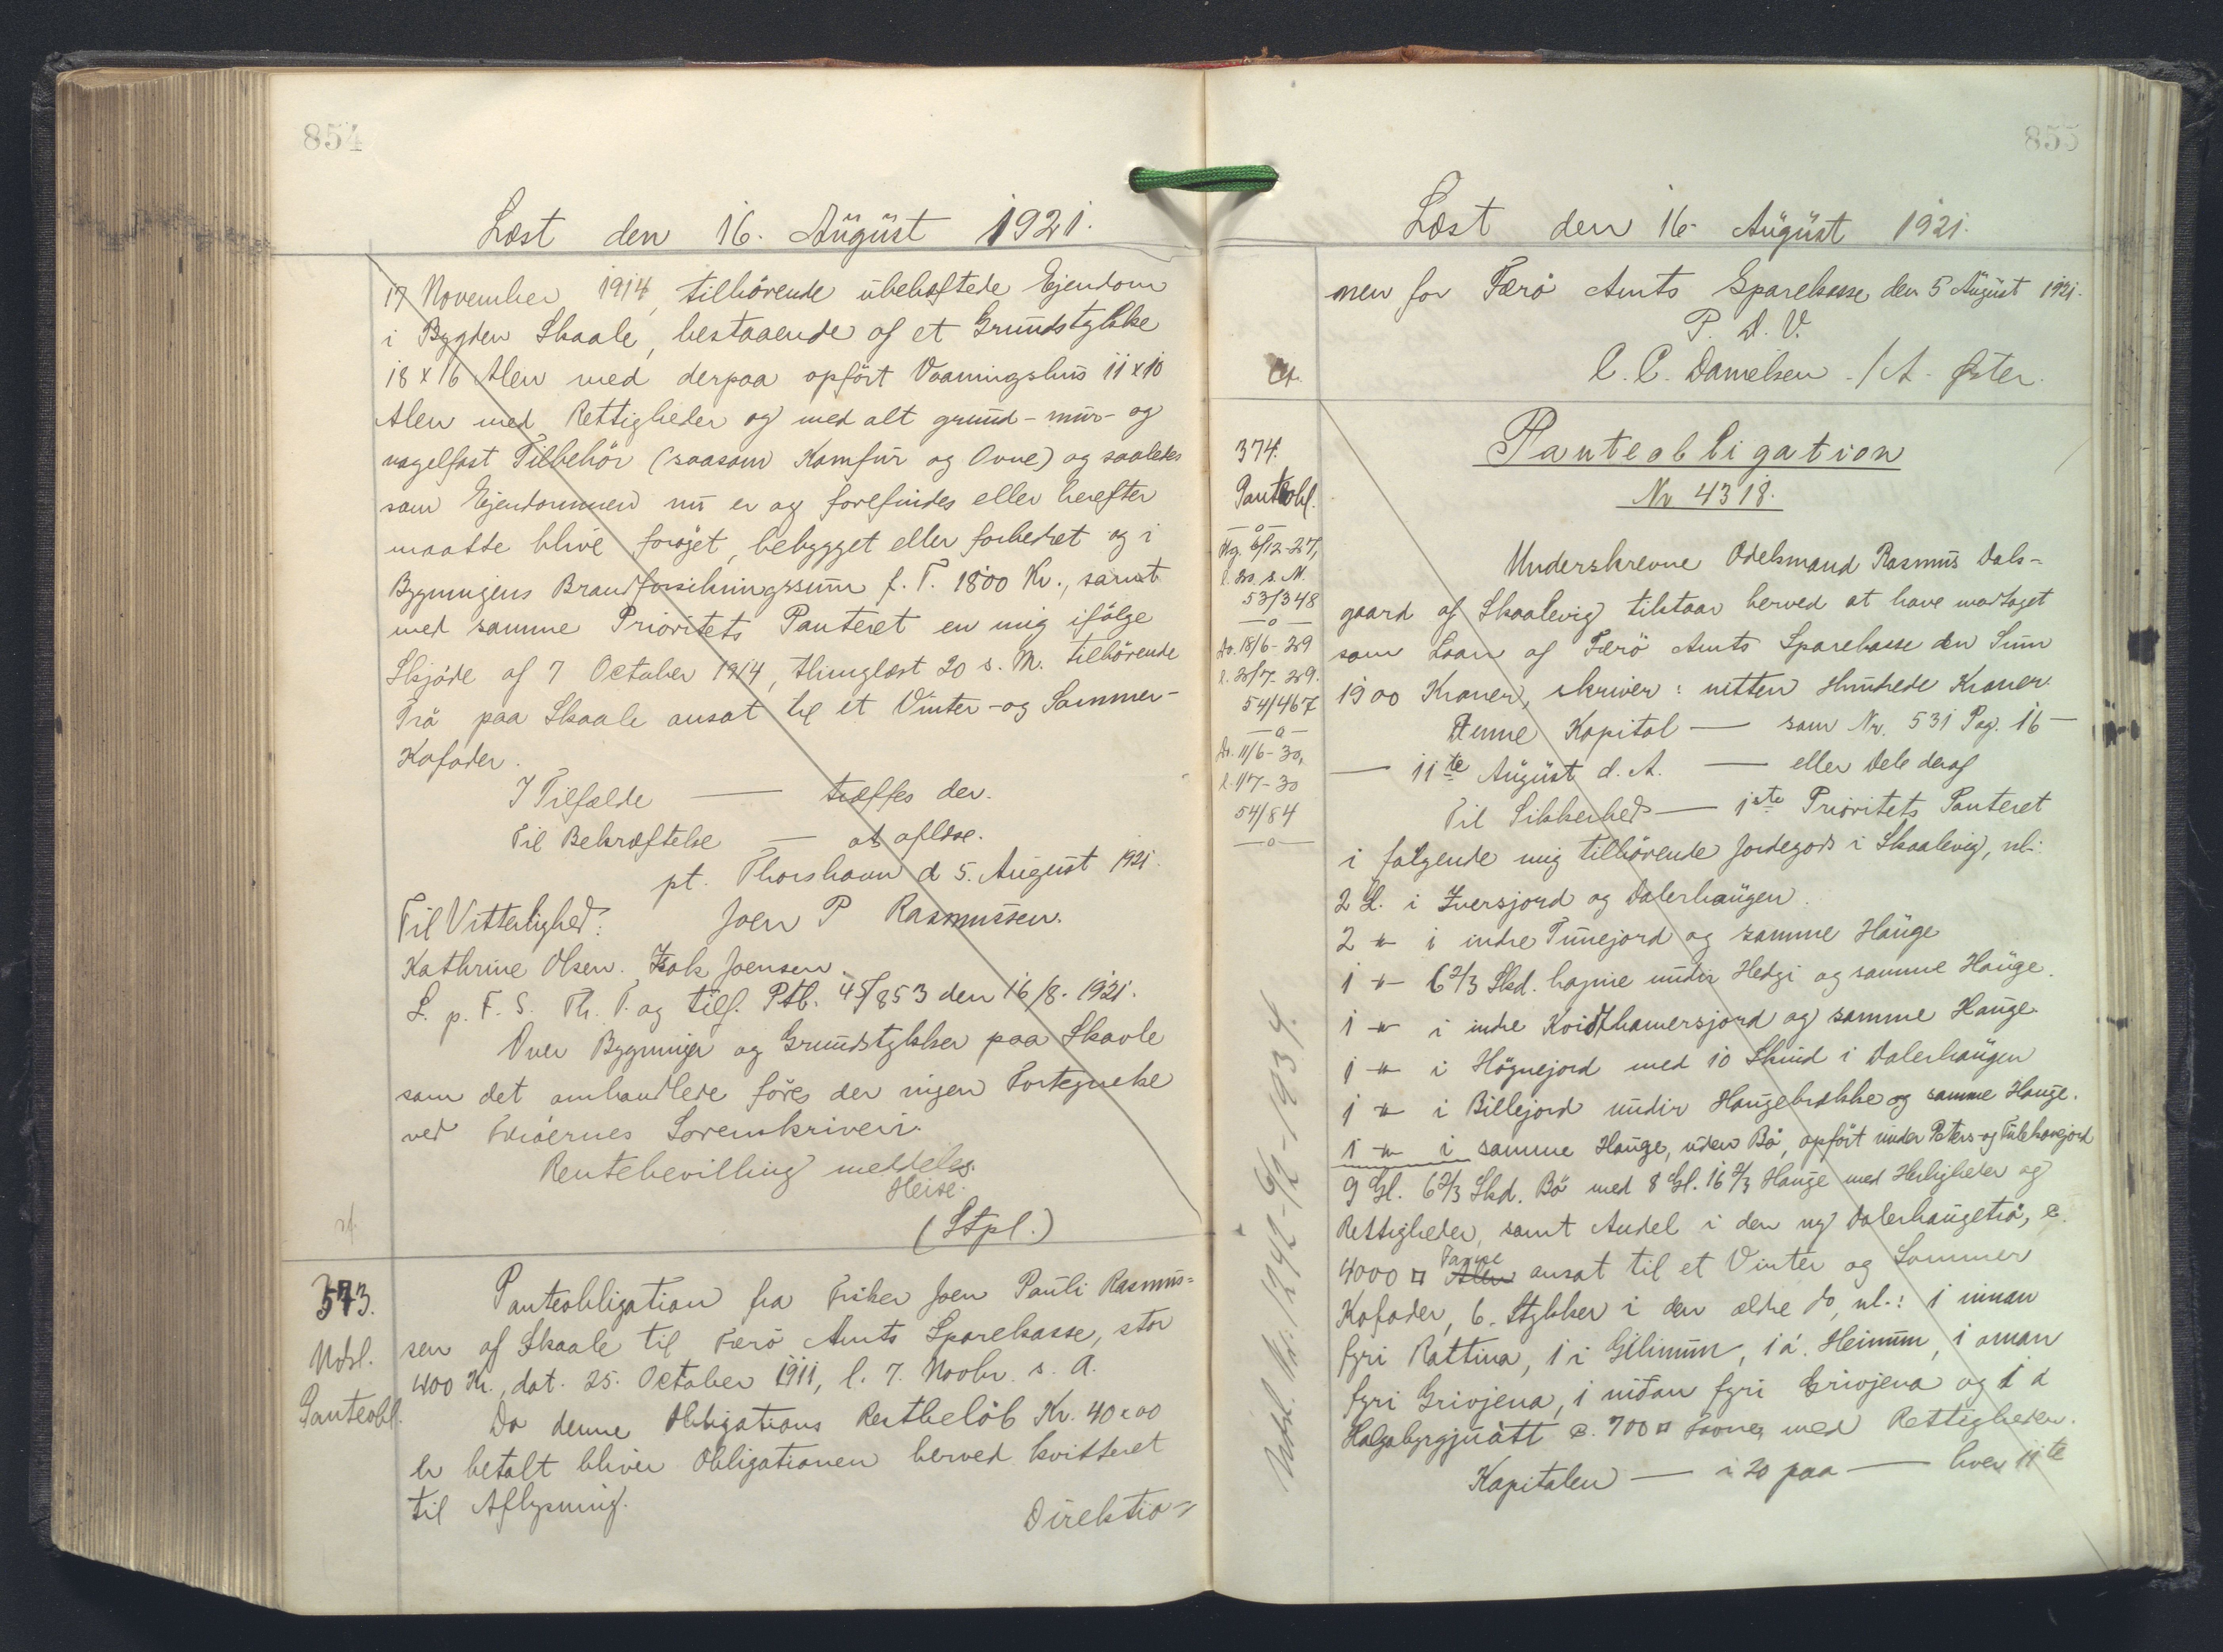 854
Læst den 16. August 1921.
17 November 1914, tilhörende ubehæftede Ejendom
i Bygden Skaale, bestaaende af et Grundstykke
18 x 16 Alen med derpaa opfört Vaaningshus 11 x 10
Alen med Rettigheder og med alt grund- mur- og
nagelfast Tilbehör (saasom Komfur og Ovne) og saaledes
som Ejendommen nu er og forefindes eller herefter
maatte blive foröjet, bebygget eller forbedret og i
Bygningens Brandforsikringssum f. T. 1800 Kr., samt
med samme Prioritets Panteret en mig ifölge
Skjöde af 7 October 1914, thinglæst 20 s. M. tilhörende
Trö paa Skaale ansat til et Vinter- og Sommer-
Kofoder.
I Tilfælde — træffes der.
Til Bekræftelse — at aflæse.
pt. Thorshavn d 5. August 1921.
Til Vitterlighed: Joen P Rasmussen.
Kathrine Olsen. Isak Joensen.
L. p. F. S. Th. P. og tilf. Ptb. 45/853 den 16/8. 1921.
Over Bygninger og Grundstykker paa Skaale
som det omhandlede föres der ingen Fortegnelse
ved Færöernes Sorenskriveri.
Rentebevilling meddeles.
Heise.
(Stpl.)
373.
Udsl.
Panteobl.
Panteobligation fra Fisker Joen Pauli Rasmus=
sen af Skaale til Færö Amts Sparekasse, stor
400 Kr., dat. 25. October 1911, l. 7. Novbr. s. A.
Da denne Obligations Restbelöb Kr. 40 x 00
er betalt bliver Obligationen herved kvitteret
til Aflysning.
Direktio=
855
Læst den 16. August 1921.
nen for Færö Amts Sparekasse den 5 August 1921.
P. D. V.
C. C. Danielsen. / A. Öster.
374.
Panteobl.
Panteobligation
Nr 4318.
—o—
Htg. 6/12-27,
l. 20. s. M.
53/348
—o—
Do. 18/6-29
l. 2/7-29.
54/467
—o—
Do. 11/6-30,
l. 1/7-30
54/84
—o—
Underskrevne Odelsmand Rasmus Dals=
gaard af Skaalevig tilstaar herved at have modtaget
som Laan af Færö Amts Sparekasse den Sum
1900 Kroner, skriver: nitten Hundrede Kroner.
Denne Kapital — som Nr. 531 Pag. 16 —
— 11te August d. A. — eller Dele deraf
Til Sikkerhed — 1ste Prioritets Panteret
i fölgende mig tilhörende Jordegods i Skaalevig, nl.:
2 Gl. i Iversjord og Dalerhaugen.
2 -"- i indre Tunejord og samme Hauge
1 -"- 6 2/3 Skd. hajme undir Hedgi og samme Hauge.
1 -"- i indre Koidthamersjord og samme Hauge.
1 -"- i Högnejord med 10 Skind i Dalerhaugen
1 -"- i Billejord undir Haugebrekke og samme Hauge.
1 -"- i samme Hauge, uden Bö, opfört under Peters- og Tulehansjord
9 Gl. 6 2/3 Skd. Bö med 8 Gl. 16 2/3 Hauge med Herligheder og
Rettigheder, samt Andel i den ny Dalerhaugetrö, c.
4000 □ Favne Alen ansat til et Vinter og Sommer
Kofoder, 6. Stykker i den ældre do, nl.: 1 innan
fyri Rattina, 1 i Gilinum, 1 á Heimum, 1 oman
fyri Grivjena, 1 niðan fyri Grivjena og 1 á
c. 700 □ Favne, med Rettigheder.
Kapitalen — i 20 paa — hver 11te